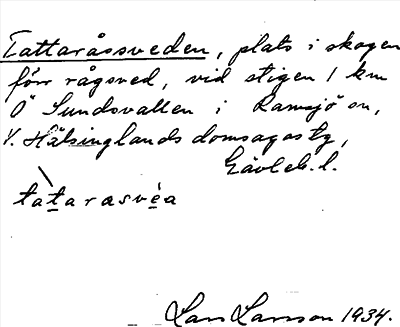 Tattaråssveden, plats i skogen
förr rågsved, vid stigen 1 km
Ö Sundsvallen i Ramsjö sn,
V. Hälsinglands domsagas tg,
Gävleb. l.
tatarasvèa
Lars Larsson 1934.